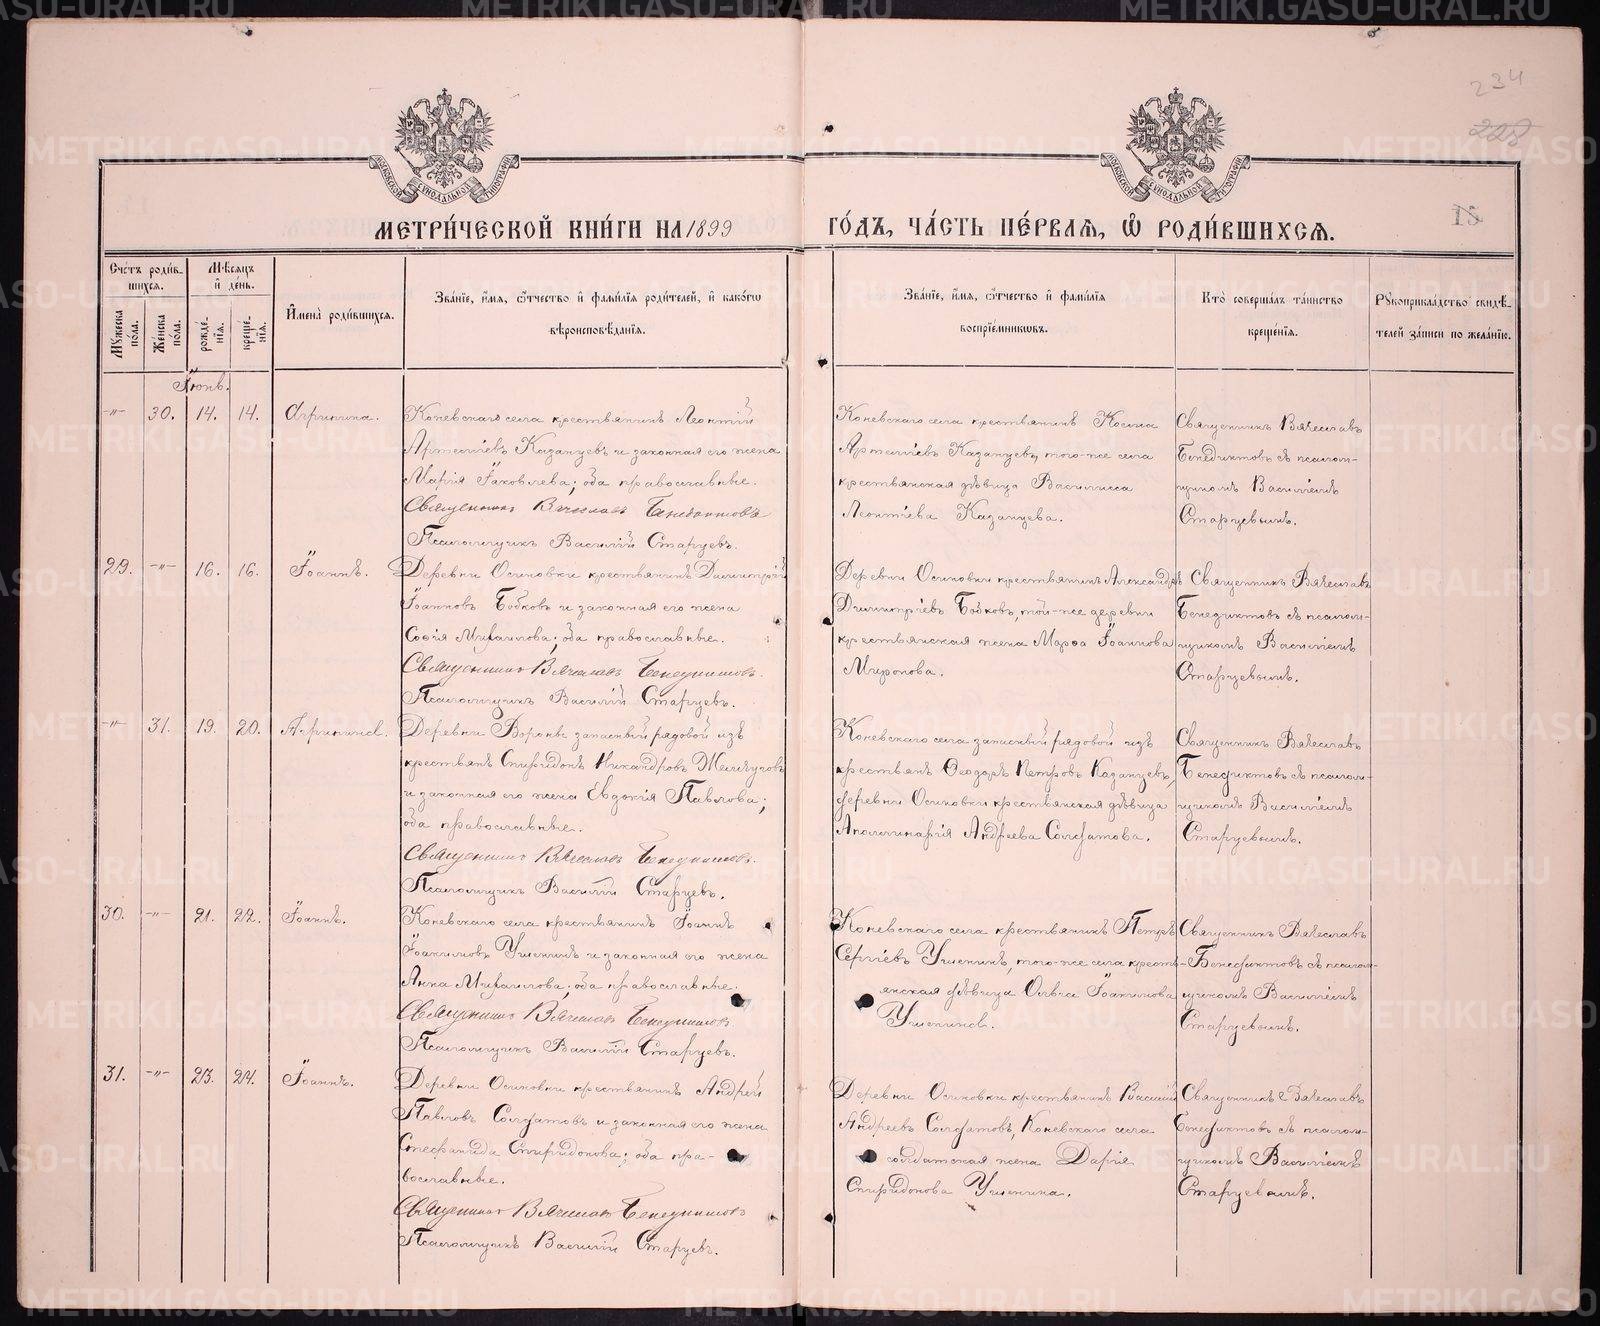 234
228
МОСКОВСКОЙ СѴНОДАЛЬНОЙ ТИПОГРАФІИ
МОСКОВСКОЙ СѴНОДАЛЬНОЙ ТИПОГРАФІИ
МЕТРИ́ЧЕСКОЙ КНИ́ГИ НА 1899 ГО́ДЪ, ЧА́СТЬ ПЕ́РВАЯ, Ѡ РОДИ́ВШИХСЯ.
15
Сче́тъ роди́в-
шихся.
Мѣ́сяцъ
и де́нь.
Имена̀ роди́вшихся.
Зва́нїе, и́мя, ѻ́тчество и фами́лїя роди́телей, и како́гѡ
вѣроисповѣ́данїя.
Зва́нїе, и́мя, ѻ́тчество и фами́лїя
воспрїе́мникѡвъ.
Кто̀ соверша́лъ та́инство
креще́нїя.
Рꙋкоприкла́дство свидѣ́-
телей за́писи по жела́нїю.
Мꙋ́жеска
по́ла.
Же́нска
по́ла.
рожде́-
нїя.
креще́-
нїя.
Іюнь.
-"- 30. 14. 14. Агрипина.
Коневскаго села крестьянинъ Леонтій
Артеміевъ Казанцевъ и законная его жена
Марія Іаковлева; оба православные.
Священникъ Вячеславъ Бенедиктовъ
Псаломщикъ Василій Старцевъ.
Коневскаго села крестьянинъ Косма
Артеміевъ Казанцевъ, того-же села
крестьянская дѣвица Василисса
Леонтіева Казанцева.
Священникъ Вячеславъ
Бенедиктовъ съ псалом-
щикомъ Василіемъ
Старцевымъ.
29. -"- 16. 16. Іоаннъ.
Деревни Осиновки крестьянинъ Димитрій
Іоанновъ Бобковъ и законная его жена
Софія Михаилова; оба православные.
Священникъ Вячеславъ Бенедиктовъ.
Псаломщикъ Василій Старцевъ.
Деревни Осиновки крестьянинъ Александръ
Димитріевъ Бобковъ, той-же деревни
крестьянская жена Марѳа Іоаннова
Миронова.
Священникъ Вячеславъ
Бенедиктовъ съ псалом-
щикомъ Василіемъ
Старцевымъ.
-"- 31. 19. 20. Агрипина.
Деревни Вороньи запасный рядовой изъ
крестьянъ Спиридонъ Никандровъ
и законная его жена Евдокія Павлова;
оба православные.
Священникъ Вячеславъ Бенедиктовъ.
Псаломщикъ Василій Старцевъ.
Коневскаго села запасный рядовой изъ
крестьянъ Ѳеодоръ Петровъ Казанцевъ,
деревни Осиновки крестьянская дѣвица
Аполлинарія Андреева Солдатова.
Священникъ Вячеславъ
Бенедиктовъ съ псалом-
щикомъ Василіемъ
Старцевымъ.
30. -"- 21. 22. Іоаннъ.
Коневскаго села крестьянинъ Іоаннъ
Іоакимовъ Ушенинъ и законная его жена
Анна Михаилова; оба православные.
Священникъ Вячеславъ Бенедиктовъ
Псаломщикъ Василій Старцевъ.
Коневскаго села крестьянинъ Петръ
Сергіевъ Ушенинъ, того-же села кресть-
янская дѣвица Ольга Іоакимова
Ушенина.
Священникъ Вячеславъ
Бенедиктовъ съ псалом-
щикомъ Василіемъ
Старцевымъ.
31. -"- 23. 24. Іоаннъ.
Деревни Осиновки крестьянинъ Андрей
Павловъ Солдатовъ и законная его жена
Стефанида Спиридонова; оба пра-
вославные.
Священникъ Вячеславъ Бенедиктовъ
Псаломщикъ Василій Старцевъ.
Деревни Осиновки крестьянинъ Василій
Андреевъ Солдатовъ, Коневскаго села
солдатская жена Дарія
Спиридонова Ушенина.
Священникъ Вячеславъ
Бенедиктовъ съ псалом-
щикомъ Василіемъ
Старцевымъ.
METRIKI.GASO-URAL.RU